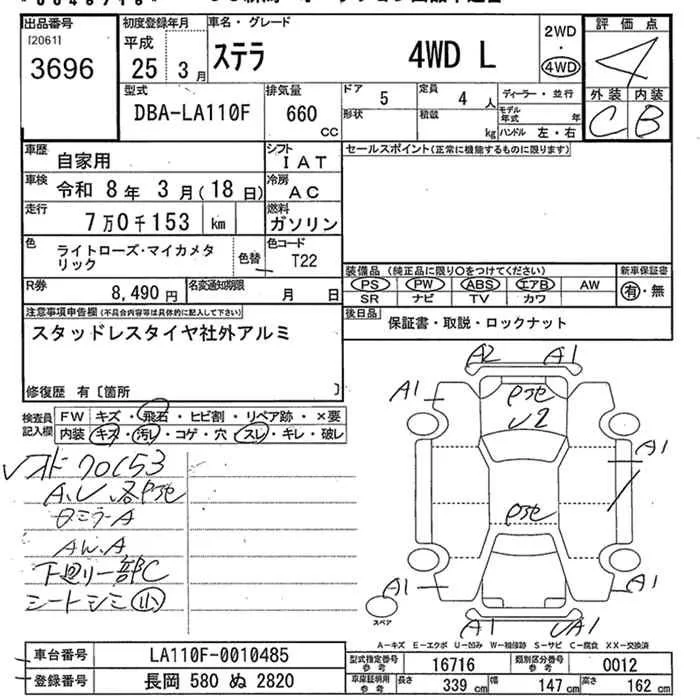 出品番号
I20611
3696
初度登録年月
平成
25 3 月
車名 ・ グレード
ステラ 4WD L
2WD
・
4WD
評価点
4
外装 内装
C B
型式
DBA-LA110F
排気量
660 CC
ドア
5
定員
4 人
ディーラー ・ 並行
形状
積載
kg
モデル年式 年
ハンドル 左 ・ 右
車歴
自家用
シフト
I A T
車検
令和 8 年 3 月 ( 18 日)
冷房
A C
走行
7 万 0 千 153 km
燃料
ガソリン
色
ライトローズ・マイカメタリック
色替
色コード
T22
R券
8,490 円
名変通知期限
月 日
セールスポイント(正常に機能するものに限ります)
装備品 (純正品に限り○をつけてください)
新車保証書
PS PW ABS エアB AW
有 ・ 無
SR ナビ TV カワ
後日品
保証書・取説・ロックナット
注意事項申告欄 (不具合内容等は具体的に記入して下さい)
スタッドレスタイヤ社外アルミ
修復歴 有 〔箇所 〕
検査員記入欄
FW キズ ・ 飛石 ・ ヒビ割 ・ リペア跡 ・ ×要
内装 キズ ・ 汚れ ・ コゲ ・ 穴 ・ スレ ・ キレ ・ 破レ
70153
A、U、各
ミラーA
AW、A
下回り一部C
シートシミ 小
A2 A1
A1
U2
A1
A1 A1
A1
スペア
A－キズ E－エクボ U－凹み W－補修跡 S－サビ C－腐食 XX－交換済
車台番号
LA110F-0010485
登録番号
長岡 580 ぬ 2820
型式指定番号 参考
16716
類別区分番号 参考
0012
車庫証明用 参考
長さ 339 cm 幅 147 cm 高さ 162 cm